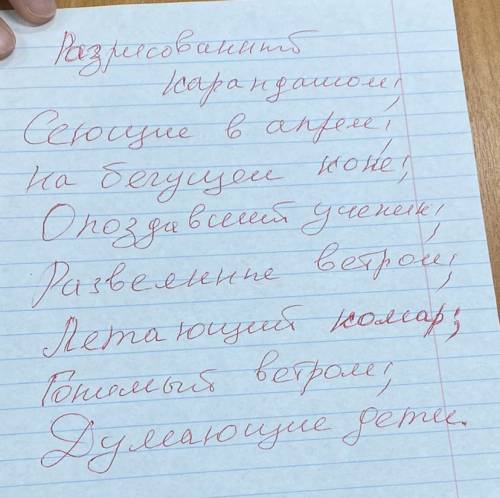 Разрисованный
карандашом;
Сеющие в апреле;
на бегущем коне;
Опоздавший ученик;
Развеянные ветром;
Летающий комар;
Гонимый ветром;
Думающие дети.